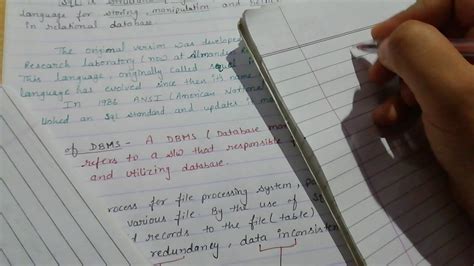 SQL is structured
language for storing, manipulation and
in relational database.
The original version was develope
Research Laboratory (now at Almaden
This language, originally called
language has evolved since then its name
In 1986 ANSI (American National
lished an SQL standard and updates
of DBMS - A DBMS (Database man
refers to a s/w that responsible
and utilizing database.
rocess for file processing system,
various file By the use of
d records to the file (table)
redundancy, data inconsisten